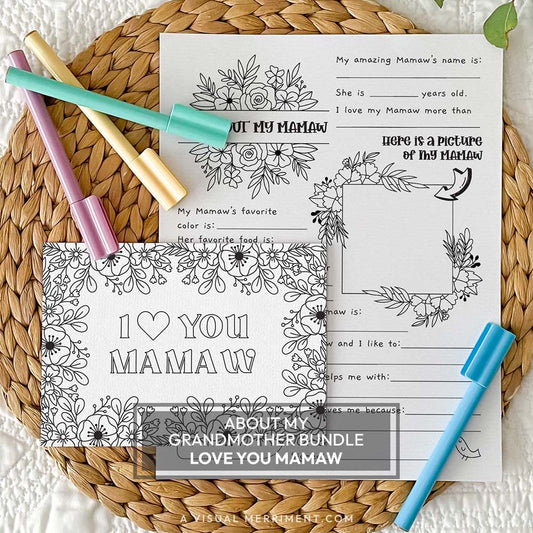 My amazing Mamaw's name is:
She is years old.
I love my Mamaw more than
OUT MY MAMAW
Here is a picture
of my Mamaw
My Mamaw's favorite
color is:
Her favorite food is:
I ♡ YOU
MAMAW
is:
and I like to:
helps me with:
because:
ABOUT MY
GRANDMOTHER BUNDLE
LOVE YOU MAMAW
A VISUAL MERRIMENT.COM